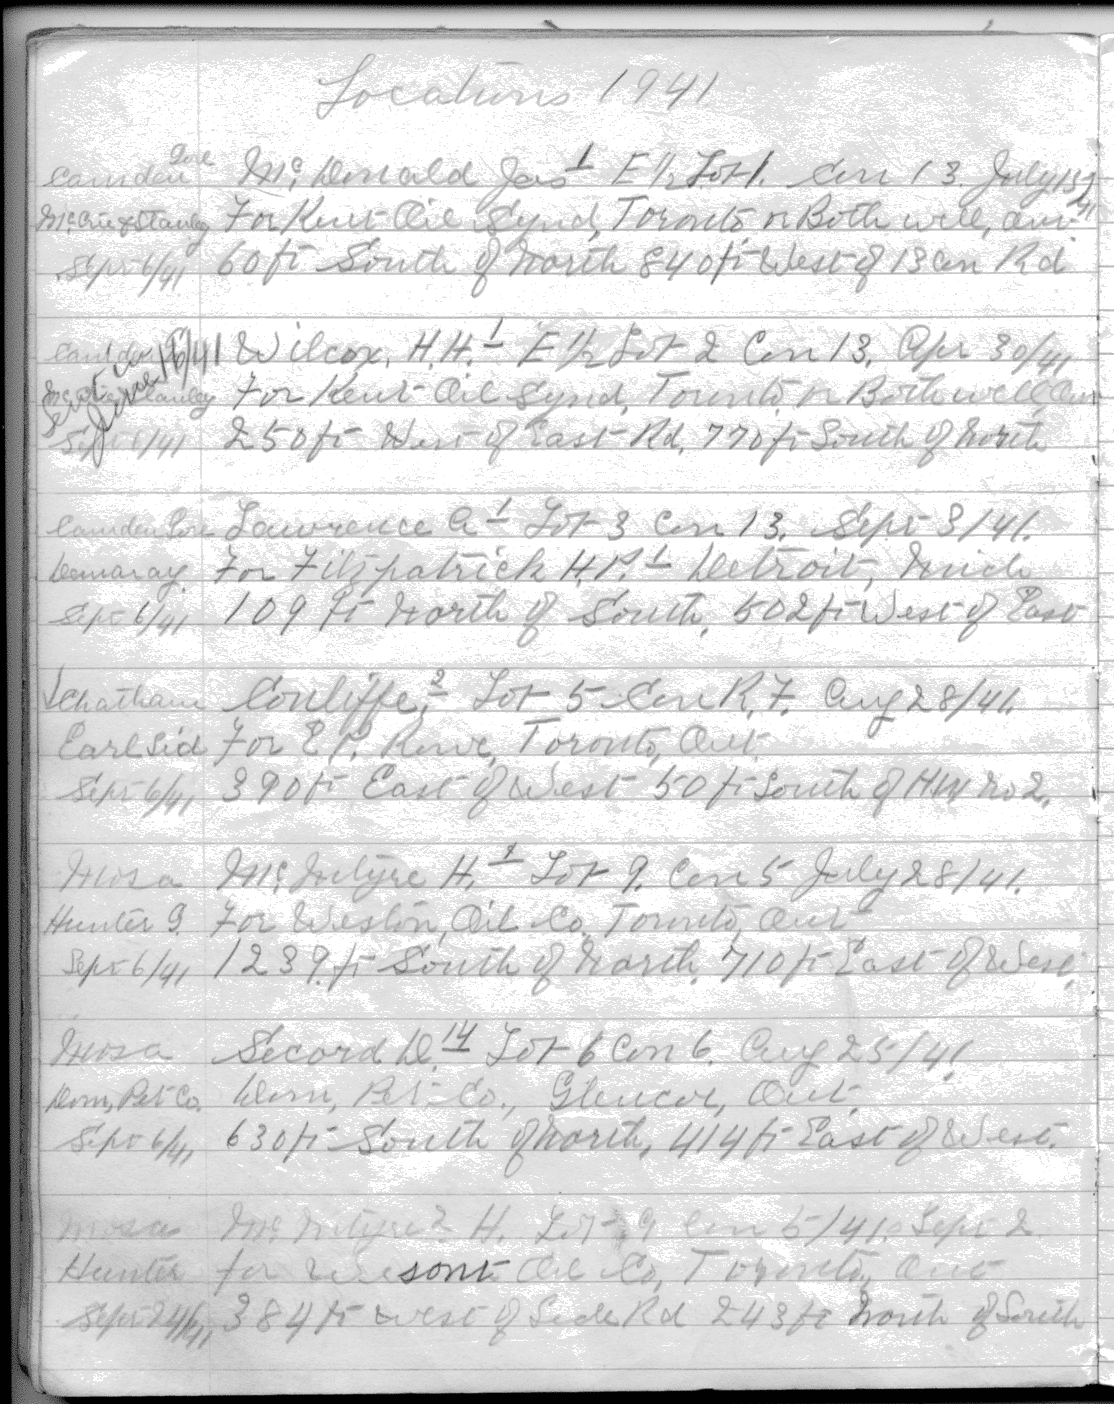 Locations 1941
Camden Gore McDonald Jas 1 E 1/2 Lot 1. Con 13. July 15/41
McCrie & Stanley For Kent Oil Synd, Toronto or Bothwell, Ont
Sept 6/41 60 ft South of North 840 ft West of 13 Con Rd
Camden Wilcox, H.H. 1 E 1/2 Lot 2 Con 13. Apr 30/41
McCrie Stanley For Kent Oil Synd, Toronto or Bothwell, Ont
Sept 6/41 250 ft West of East Rd, 770 ft South of North
Camden Gore Lawrence A 1 Lot 3 Con 13. Sept 3/41.
Demaray For Fitzpatrick H.P. 1 Detroit, Mich
Sept 6/41 109 ft North of South, 502 ft West of East
Chatham Conliffe, 2 Lot 5 Con R.F. Aug 28/41.
Earl Sid For E.P. Rowe, Toronto, Ont
Sept 6/41 390 ft East of West 50 ft South of H.W no 2.
Mosa McIntyre H. 1 Lot 9. Con 5 July 28/41.
Hunter G. For Weston, Oil Co, Toronto, Ont
Sept 6/41 1239. ft South of North, 710 ft East of West.
Mosa Secord D. 14 Lot 6 Con 6. Aug 25/41.
Dom, Pet Co. Dom, Pet. Co., Glencoe, Ont.
Sept 6/41 630 ft South of North, 414 ft East of West.
Mosa McIntyre 2 H. Lot 9 Con 5/41. Sept 2
Hunter for Oil Co, Toronto, Ont
Sept 24/41, 384 ft west of Side Rd 243 ft North of South